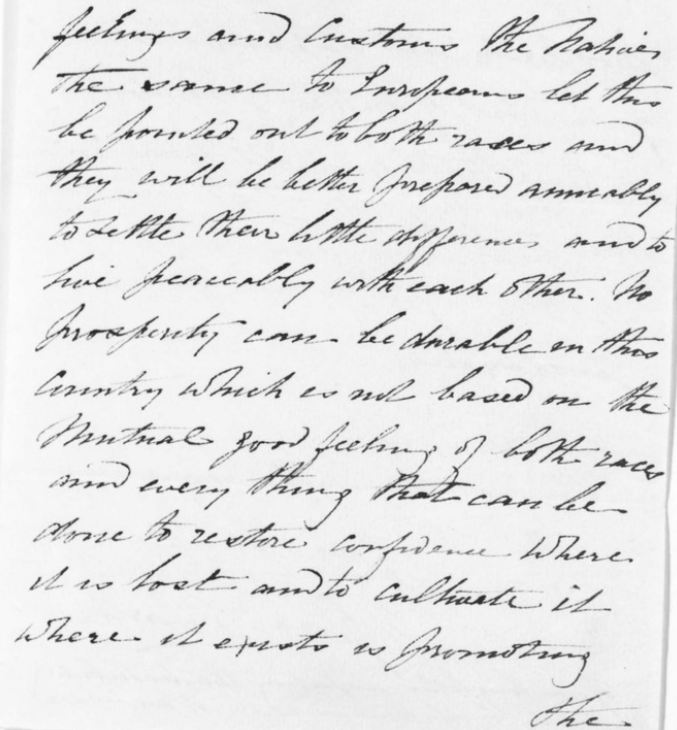 feelings and Customs the Natives
the same to Europeans let this
be pointed out to both races and
they will be better prepared amicably
to settle their little differences and to
live peaceably with each other. No
prosperity can be durable in this
Country which is not based on the
Mutual good feeling of both races
and every thing that can be
done to restore confidence where
it is lost and to cultivate it
where it exists is promoting
the